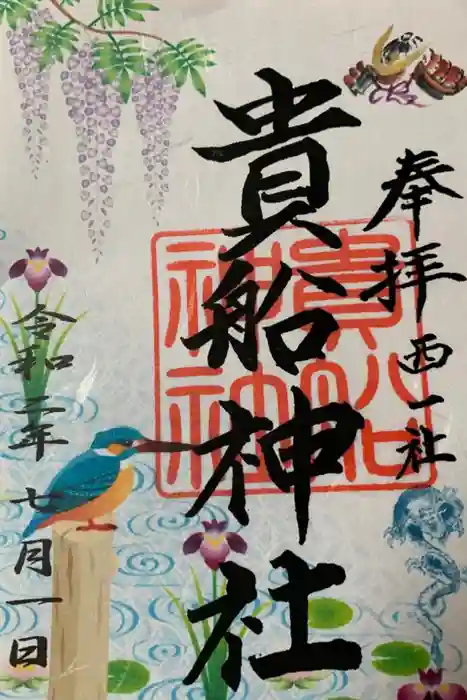 奉拝 西一社
貴船神社
貴船
神社
令和二年七月一日